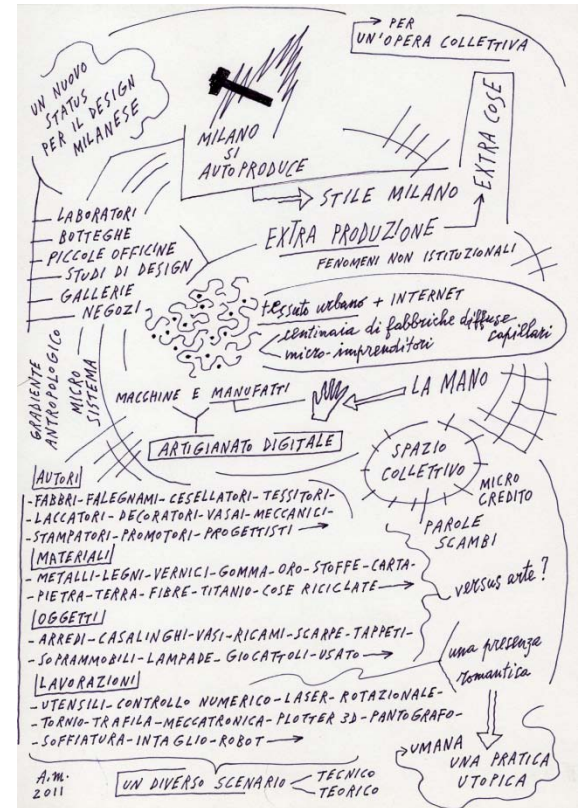 PER
UN'OPERA COLLETTIVA
UN NUOVO
STATUS
PER IL DESIGN
MILANESE
MILANO
SI
AUTOPRODUCE
STILE MILANO
EXTRA COSE
EXTRA PRODUZIONE
FENOMENI NON ISTITUZIONALI
- LABORATORI
- BOTTEGHE
- PICCOLE OFFICINE
- STUDI DI DESIGN
- GALLERIE
- NEGOZI
tessuto urbano + INTERNET
centinaia di fabbriche diffuse
capillari
micro-imprenditori
GRADIENTE
ANTROPOLOGICO
MICRO
SISTEMA
MACCHINE E MANUFATTI
LA MANO
ARTIGIANATO DIGITALE
SPAZIO
COLLETTIVO
MICRO
CREDITO
PAROLE
SCAMBI
AUTORI
-FABBRI-FALEGNAMI-CESELLATORI-TESSITORI-
-LACCATORI-DECORATORI-VASAI-MECCANICI-
-STAMPATORI-PROMOTORI-PROGETTISTI
MATERIALI
-METALLI-LEGNI-VERNICI-GOMMA-ORO-STOFFE-CARTA-
-PIETRA-TERRA-FIBRE-TITANIO-COSE RICICLATE
versus arte?
OGGETTI
-ARREDI-CASALINGHI-VASI-RICAMI-SCARPE-TAPPETI-
-SOPRAMMOBILI-LAMPADE-GIOCATTOLI-USATO
una presenza
romantica
LAVORAZIONI
-UTENSILI-CONTROLLO NUMERICO-LASER-ROTAZIONALE-
-TORNIO-TRAFILA-MECCATRONICA-PLOTTER 3D-PANTOGRAFO-
-SOFFIATURA-INTAGLIO-ROBOT
UMANA
UNA PRATICA
UTOPICA
A.M.
2011
UN DIVERSO SCENARIO
TECNICO
TEORICO